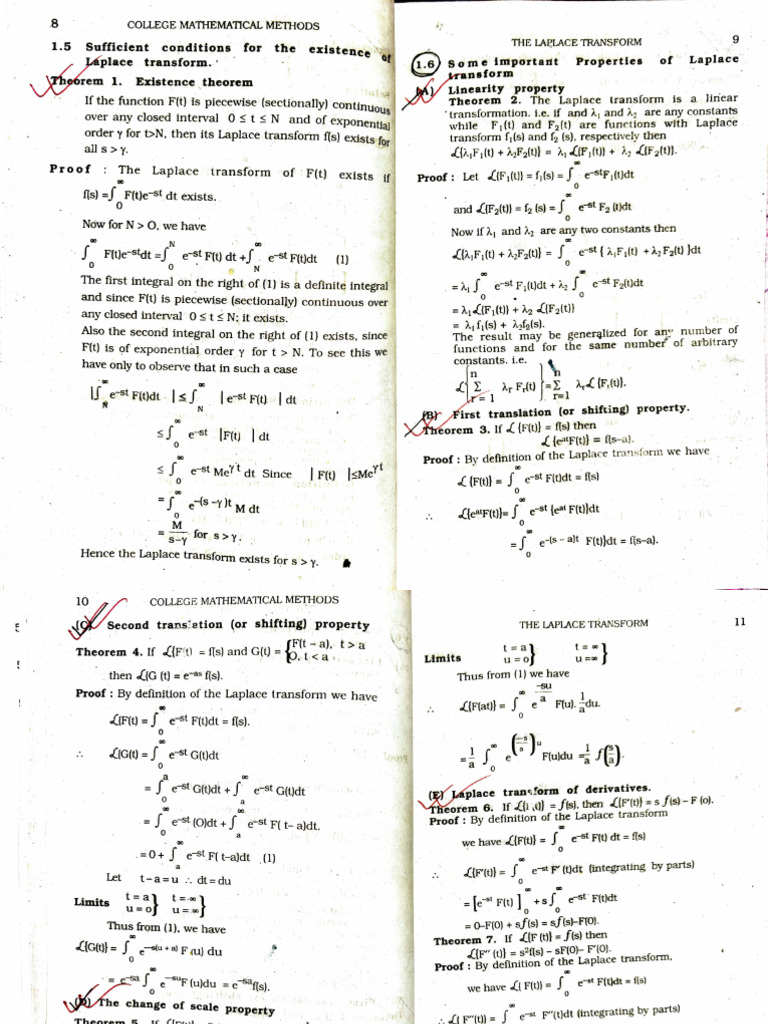 8 COLLEGE MATHEMATICAL METHODS
1.5 Sufficient conditions for the existence of
Laplace transform.
Theorem 1. Existence theorem
If the function F(t) is piecewise (sectionally) continuous
over any closed interval 0 ≤ t ≤ N and of exponential
order γ for t>N, then its Laplace transform f(s) exists for
all s > γ.
Proof : The Laplace transform of F(t) exists if
f(s) =∫₀^∞ F(t)e^-st dt exists.
Now for N > O, we have
∫₀^∞ F(t)e^-st dt =∫₀^N e^-st F(t) dt +∫_N^∞ e^-st F(t)dt (1)
The first integral on the right of (1) is a definite integral
and since F(t) is piecewise (sectionally) continuous over
any closed interval 0 ≤ t ≤ N; it exists.
Also the second integral on the right of (1) exists, since
F(t) is of exponential order γ for t > N. To see this we
have only to observe that in such a case
|∫_N^∞ e^-st F(t)dt | ≤ ∫_N^∞ | e^-st F(t) | dt
≤ ∫₀^∞ e^-st |F(t) | dt
≤ ∫₀^∞ e^-st Me^γt dt Since | F(t) | ≤Me^γt
= ∫₀^∞ e^-(s -γ)t M dt
= M/s-γ for s > γ.
Hence the Laplace transform exists for s > γ.
THE LAPLACE TRANSFORM 9
1.6 Some important Properties of Laplace
transform
(A) Linearity property
Theorem 2. The Laplace transform is a linear
transformation. i.e. if and λ₁ and λ₂ are any constants
while F₁(t) and F₂(t) are functions with Laplace
transform f₁(s) and f₂ (s), respectively then
ℒ{λ₁F₁(t) + λ₂F₂(t)} = λ₁ ℒ{F₁(t)} + λ₂ ℒ{F₂(t)}.
Proof : Let ℒ{F₁(t)} = f₁(s) = ∫₀^∞ e^-st F₁(t)dt
and ℒ{F₂(t)} = f₂ (s) = ∫₀^∞ e^-st F₂ (t)dt
Now if λ₁ and λ₂ are any two constants then
ℒ{λ₁F₁(t) + λ₂F₂(t)} = ∫₀^∞ e^-st { λ₁F₁(t) + λ₂F₂(t) }dt
= λ₁ ∫₀^∞ e^-st F₁(t)dt + λ₂ ∫₀^∞ e^-st F₂(t)dt
= λ₁ℒ{F₁(t)} + λ₂ ℒ{F₂(t)}
= λ₁ f₁(s) + λ₂f₂(s).
The result may be generalized for any number of
functions and for the same number of arbitrary
constants. i.e.
ℒ{ Σ_{r = 1}^n λr Fr(t) } = Σ_{r=1}^n λr ℒ {Fr(t)}.
(B) First translation (or shifting) property.
Theorem 3. If ℒ {F(t)} = f(s) then
ℒ {e^at F(t)} = f(s-a).
Proof : By definition of the Laplace transform we have
ℒ {F(t)} = ∫₀^∞ e^-st F(t)dt = f(s)
∴ ℒ{e^at F(t)}= ∫₀^∞ e^-st {e^at F(t)}dt
= ∫₀^∞ e^-(s - a)t F(t)}dt = f(s-a).
10 COLLEGE MATHEMATICAL METHODS
(C) Second translation (or shifting) property
Theorem 4. If ℒ{F(t) = f(s) and G(t) = {F(t - a), t > a
O, t < a
then ℒ{G (t) = e^-as f(s).
Proof : By definition of the Laplace transform we have
ℒ{F(t) = ∫₀^∞ e^-st F(t)dt = f(s).
∴ ℒ{G(t) = ∫₀^∞ e^-st G(t)dt
= ∫₀^a e^-st G(t)dt + ∫_a^∞ e^-st G(t)dt
= ∫₀^a e^-st (O)dt + ∫_a^∞ e^-st F( t- a)dt.
= 0 + ∫_a^∞ e^-st F( t-a)dt (1)
Let t - a = u ∴ dt = du
Limits t = a } t = ∞ }
u = o } u = ∞ }
Thus from (1), we have
ℒ{G(t)} = ∫₀^∞ e^-s(u + a) F (u) du
= e^-sa ∫₀^∞ e^-su F (u)du = e^-sa f(s).
(D) The change of scale property
THE LAPLACE TRANSFORM 11
Limits t = a } t = ∞ }
u = o } u = ∞ }
Thus from (1) we have
∴ ℒ{F(at)} = ∫₀^∞ e^(-su/a) F(u). 1/a du.
= 1/a ∫₀^∞ e^(-s/a)u F(u)du = 1/a f(s/a).
(E) Laplace transform of derivatives.
Theorem 6. If ℒ{ (t)} = f(s), then ℒ{F'(t)} = s f(s) – F (o).
Proof : By definition of the Laplace transform
we have ℒ{F(t)} = ∫₀^∞ e^-st F(t) dt = f(s)
∴ ℒ{F'(t)} = ∫₀^∞ e^-st F' (t)dt (integrating by parts)
= [e^-st F(t) ]₀^∞ + s ∫₀^∞ e^-st F(t)dt
= 0–F(0) + sf(s) = sf(s)–F(0).
Theorem 7. If ℒ{F (t)} = f(s) then
ℒ{F'' (t)} = s²f(s) – sF(0)– F'(0).
Proof : By definition of the Laplace transform,
we have ℒ{ F(t)} = ∫₀^∞ e^-st F(t)dt = f(s)
∴ ℒ{ F''(t)} = ∫₀^∞ e^-st F''(t)dt (integrating by parts)